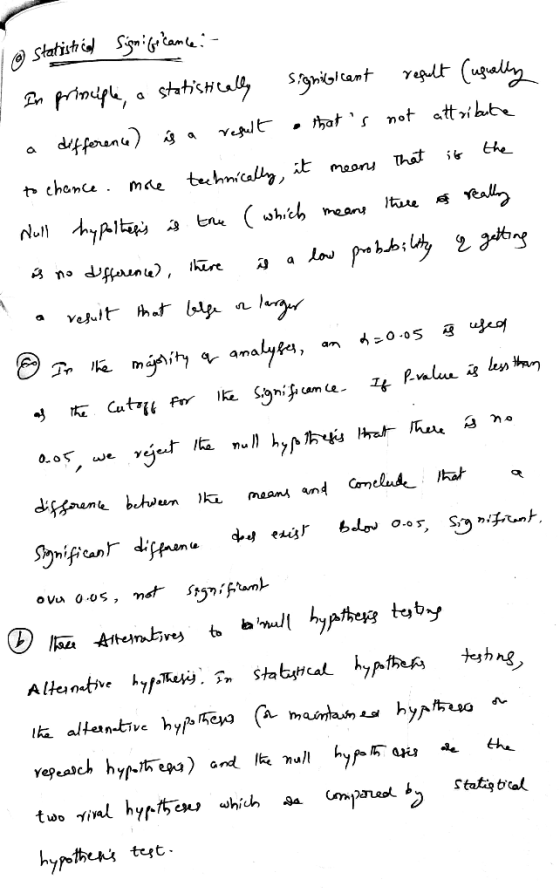 (a) Statistical Significance:-
In principle, a statistically significant result (usually
a difference) is a result that's not attribute
to chance. More technically, it means that if the
Null hypothesis is true (which means there is really
is no difference), there is a low probability of getting
a result that large or larger
In the majority of analyses, an α=0.05 is used
as the cutoff for the significance. If P-value is less than
0.05, we reject the null hypothesis that there is no
difference between the means and conclude that a
Significant difference does exist Below 0.05, significant.
over 0.05, not significant
(b) Alternatives to null hypothesis testing
Alternative hypothesis. In statistical hypothesis testing,
the alternative hypothesis (or maintained hypothesis or
research hypothesis) and the null hypothesis are the
two rival hypotheses which are compared by statistical
hypothesis test.